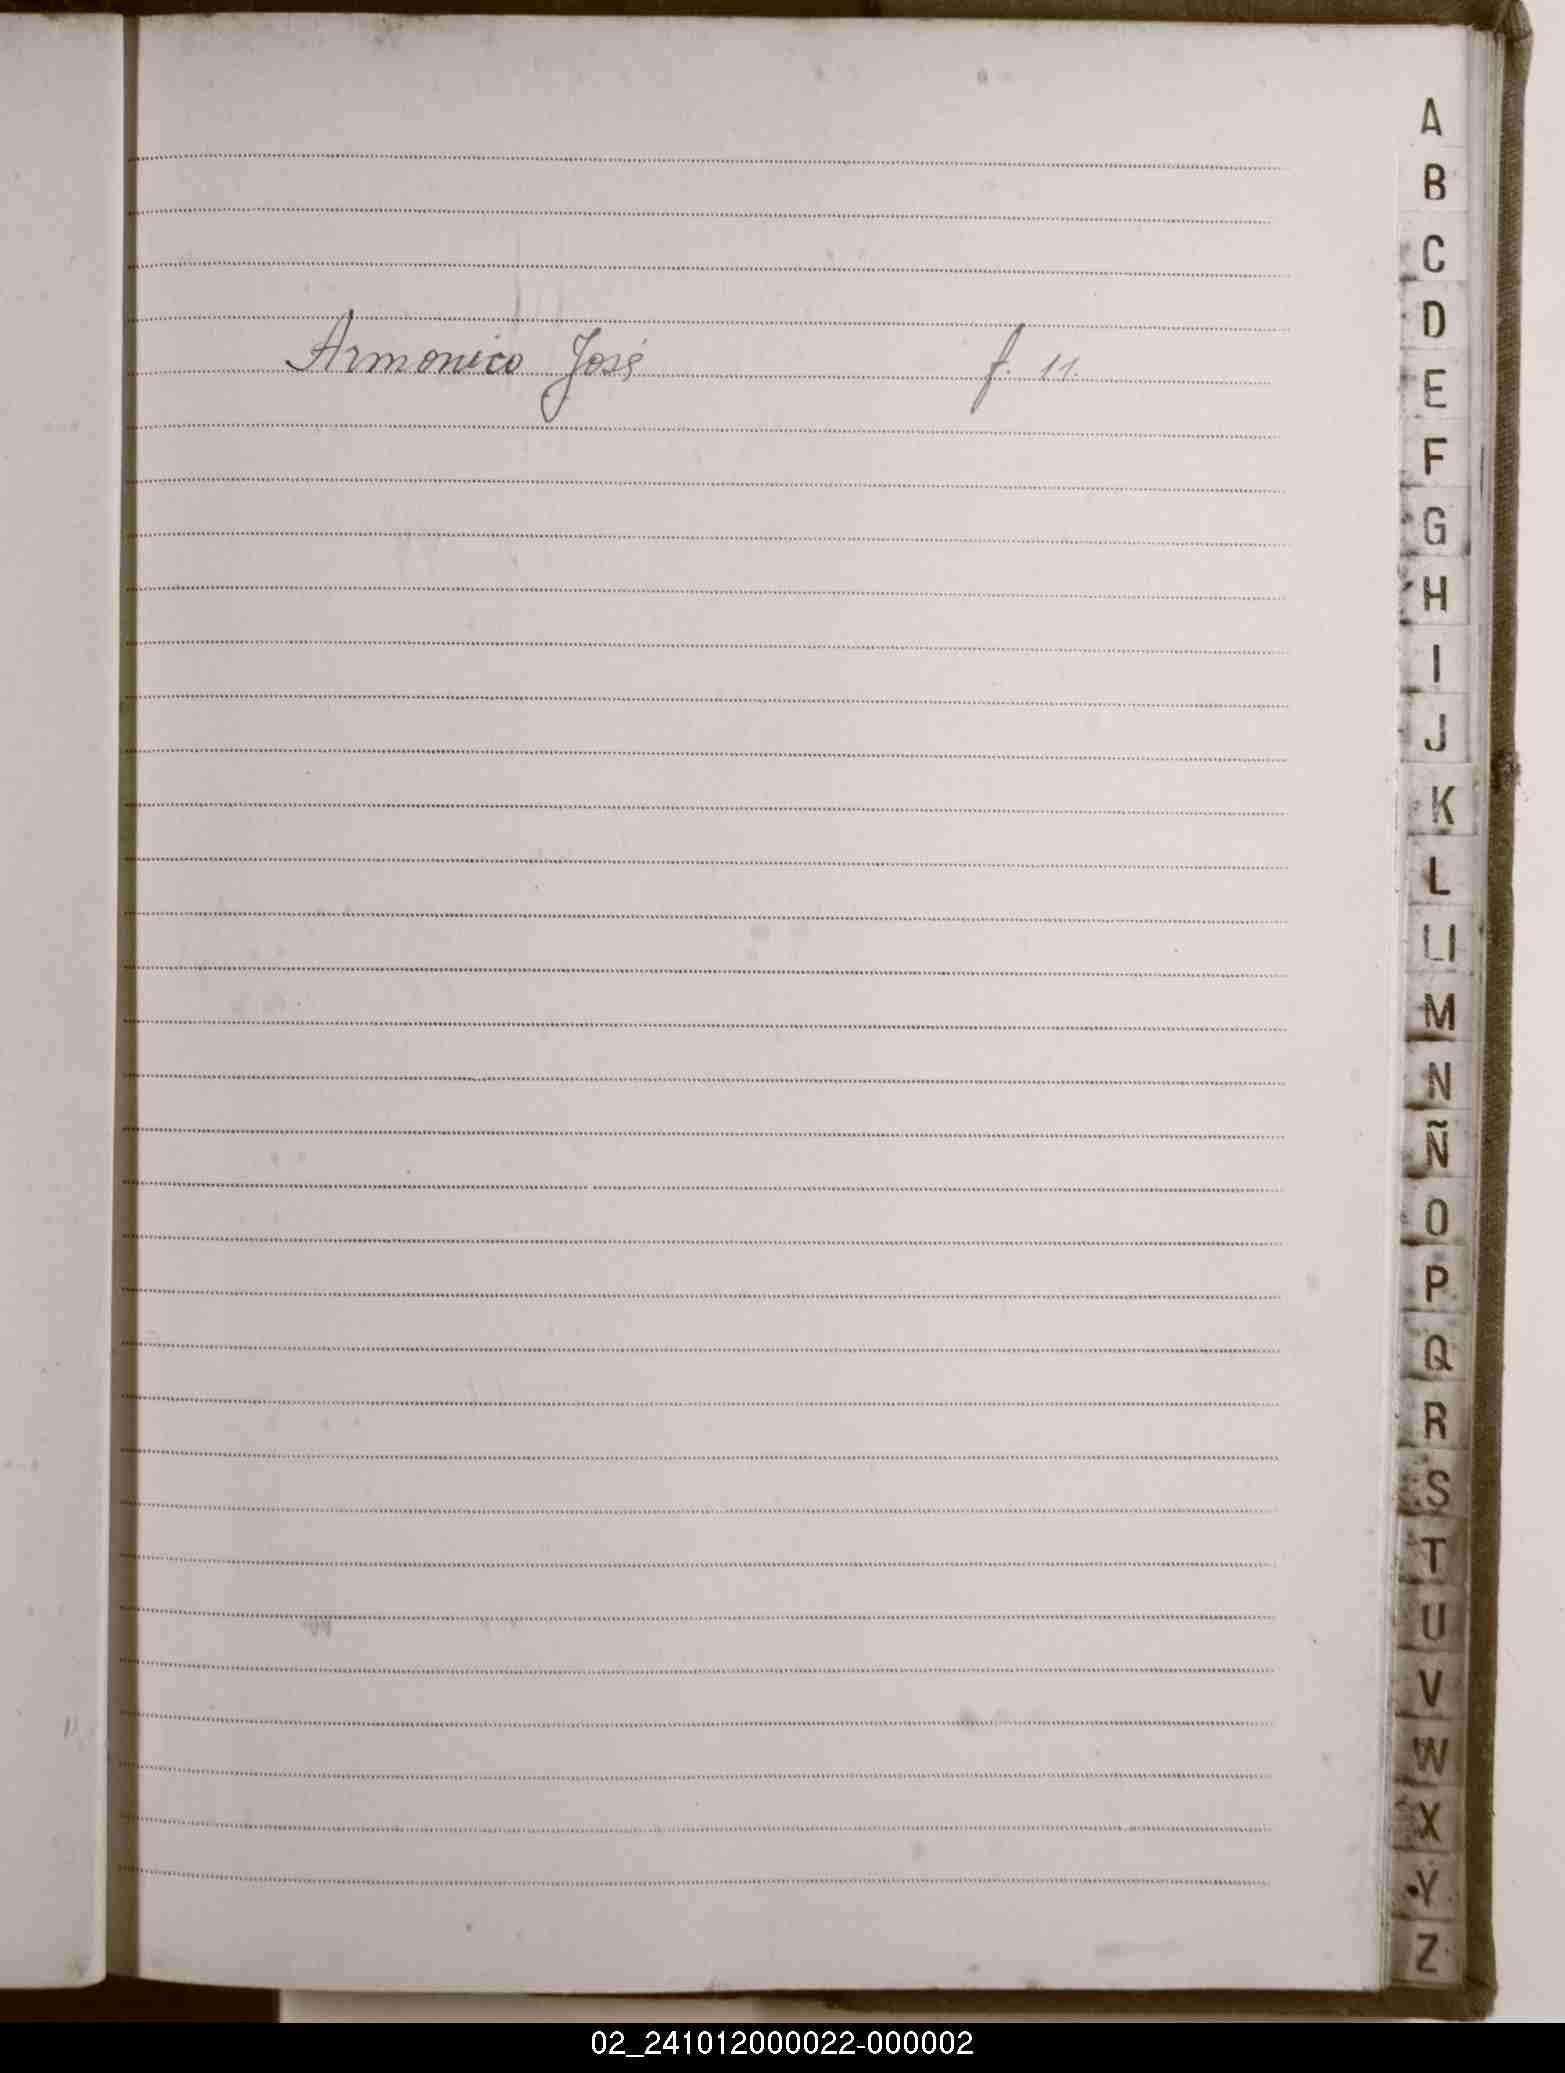 Armonico José f. 11.
A
B
C
D
E
F
G
H
I
J
K
L
Ll
M
N
Ñ
O
P
Q
R
S
T
U
V
W
X
Y
Z
02_241012000022-000002